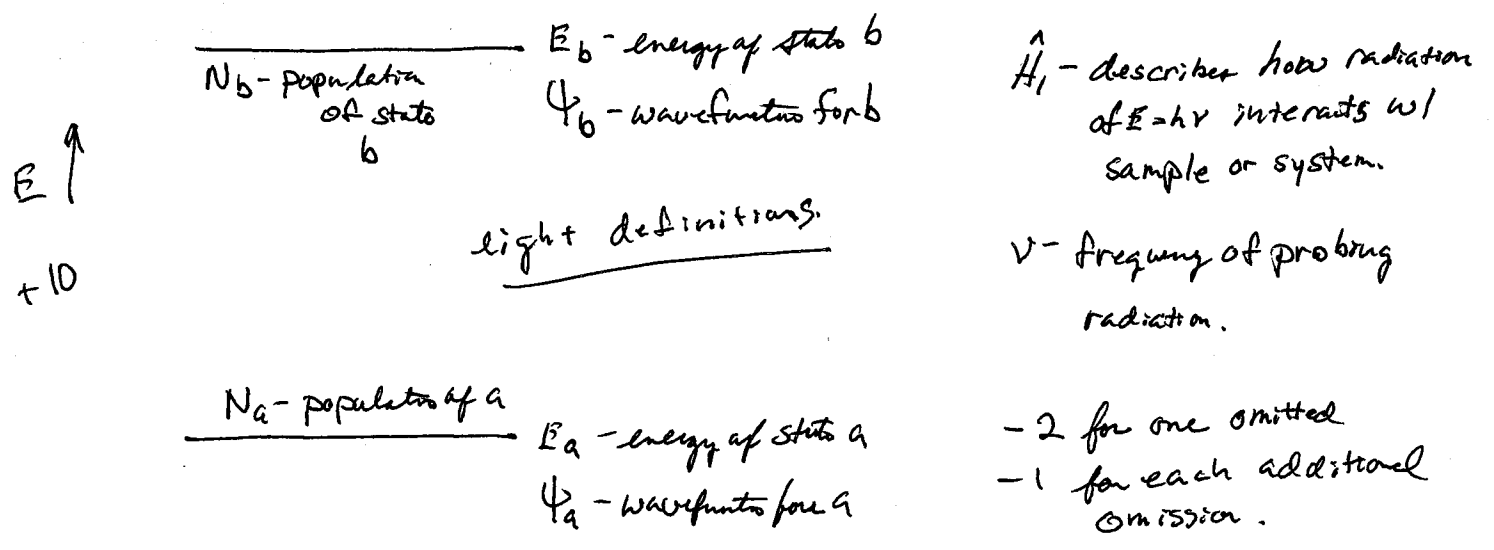 E_b - energy of state b
N_b - population
of state
b
Ψ_b - wavefunction for b
E ↑
+10
eight definitions.
N_a - population of a
E_a - energy of state a
Ψ_a - wavefunction for a
Ĥ₁ - describes how radiation
of E = hν interacts w/
sample or system.
ν - frequency of probing
radiation.
-2 for one omitted
-1 for each additional
omission.